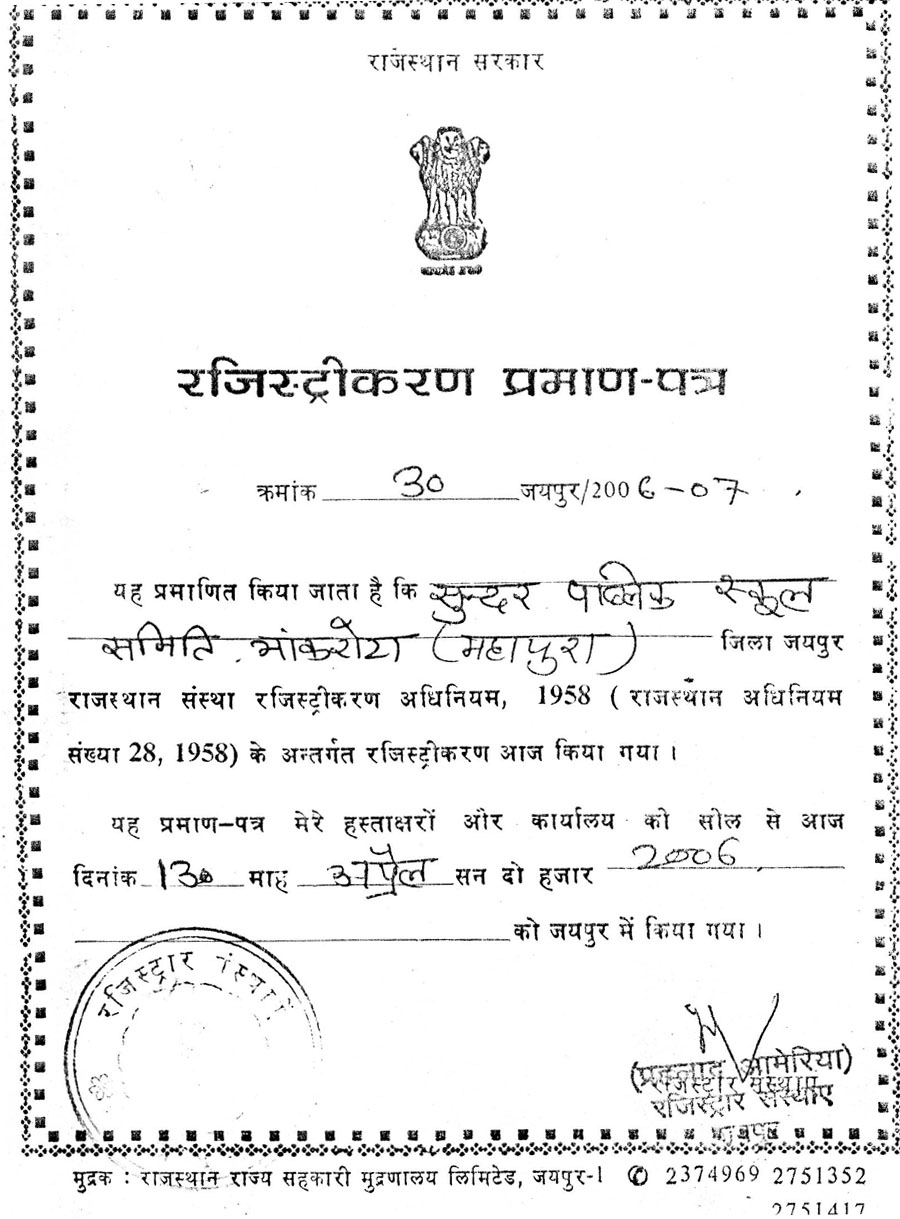 राजस्थान सरकार
रजिस्ट्रीकरण प्रमाण-पत्र
क्रमांक 30 जयपुर/2006-07
यह प्रमाणित किया जाता है कि सुन्दर पब्लिक स्कूल
समिति, भांकरोटा (महापुरा) जिला जयपुर
राजस्थान संस्था रजिस्ट्रीकरण अधिनियम, 1958 ( राजस्थान अधिनियम
संख्या 28, 1958) के अन्तर्गत रजिस्ट्रीकरण आज किया गया ।
यह प्रमाण-पत्र मेरे हस्ताक्षरों और कार्यालय को सील से आज
दिनांक माह अप्रैल सन दो हजार 2006
को जयपुर में किया गया ।
रजिस्ट्रार संस्थाऐं
(प्रहलाद आमेरिया)
रजिस्ट्रार संस्थाएं
रजिस्ट्रार संस्थाए
जयपुर
मुद्रक : राजस्थान राज्य सहकारी मुद्रणालय लिमिटेड, जयपुर-1 ✆ 2374969 2751352
2751417